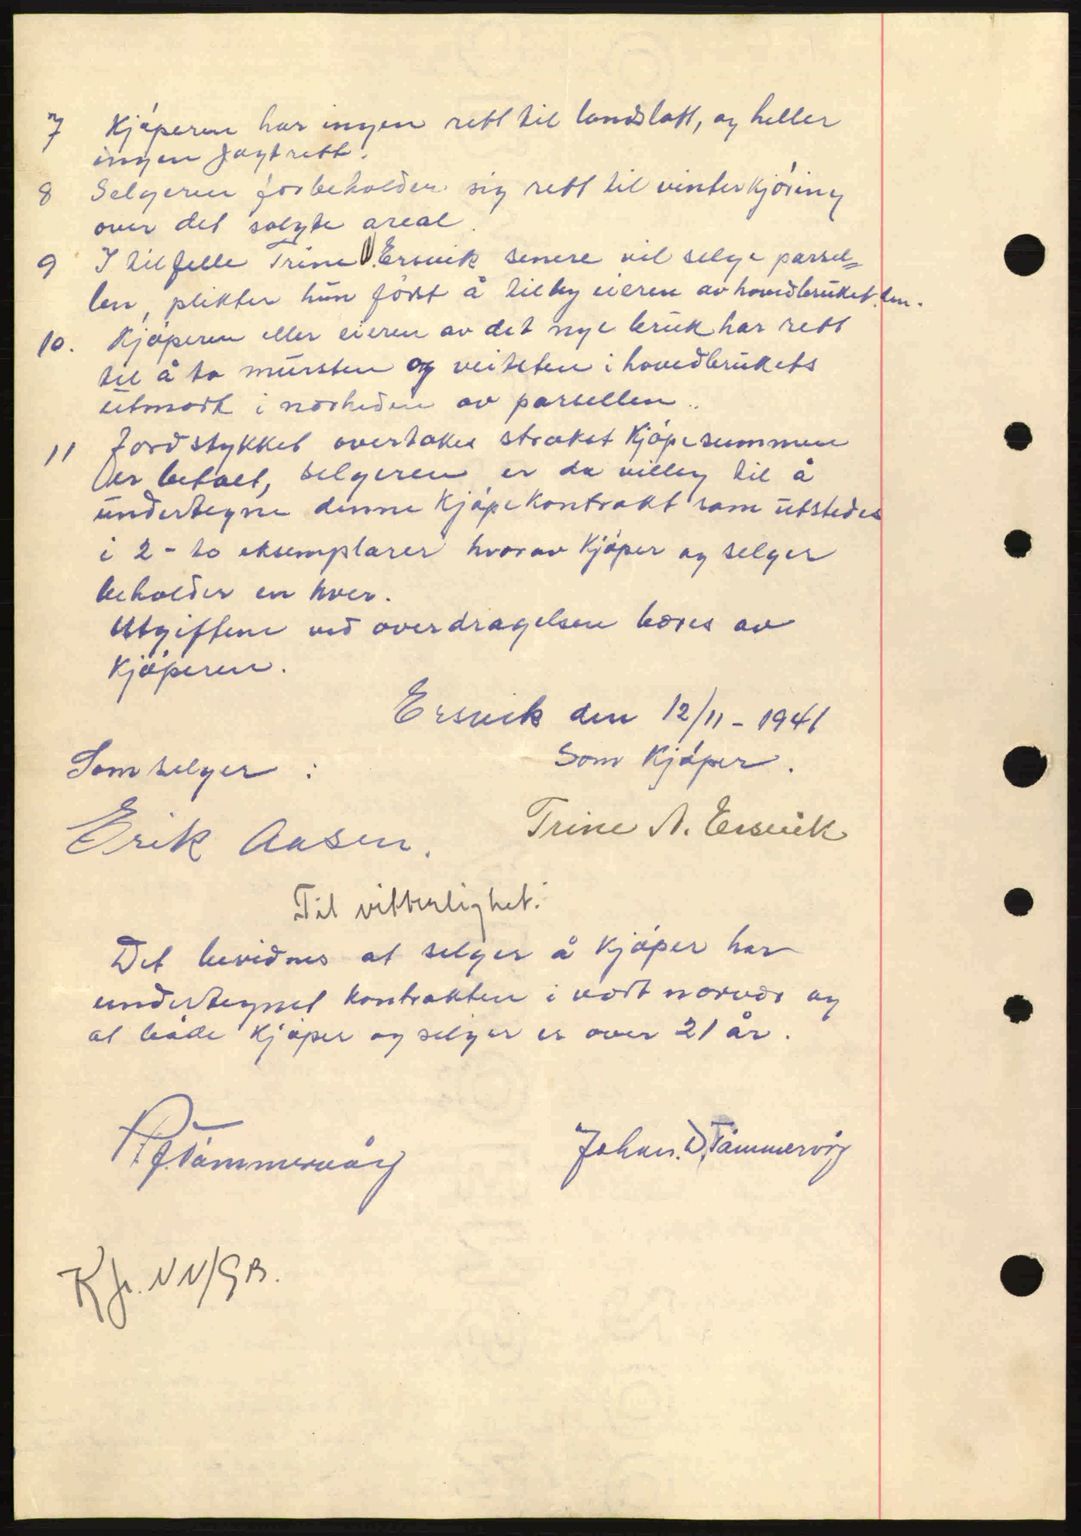 7 Kjøperen har ingen rett til landslott, og heller
ingen jagtrett.
8 Selgeren forbeholder sig rett til vinterkjøring
over det solgte areal.
9 I tilfelle Trine Ersvik senere vil selge parsel=
len, plikter hun først å tilby eieren av hovedbruket den.
10. Kjøperen eller eieren av det nye bruk har rett
til å ta mursten og veisten i hovedbrukets
utmark i nærheden av parsellen.
11 Jordstykket overtakes straket Kjøpesummen
er betalt, selgeren er da villig til å
undertegne denne Kjøpekontrakt som utstedes
i 2 - to eksemplarer hvorav Kjøper og selger
beholder en hver.
Utgiftene ved overdragelsen bæres av
Kjøperen.
Ersvik den 12/11 - 1941
Som selger : Som Kjøper.
Erik Aasen. Trine A. Ersvik
Til vitterlighet:
Det bevidnes at selger å Kjøper har
undertegnet Kontrakten i vort nærvær og
at både Kjøper og selger er over 21 år.
Tømmervåg Johan. D. Tømmervåg
Kfr. NN/GB.